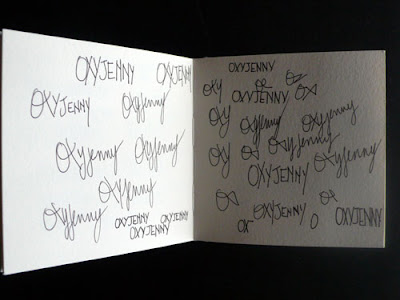 OXYJENNY OXYJENNY
OXYJENNY Oxyjenny
Oxyjenny Oxyjenny
Oxyjenny
Oxyjenny Oxyjenny
OXYJENNY OXYJENNY
OXYJENNY
OXYJENNY
Oxy OR
OXYJENNY
Oxy Oxyjenny Oxyjenny
Oxy Oxyjenny
Oxyjenny
OXYJENNY
OXYJENNY OXYJENNY
OX O